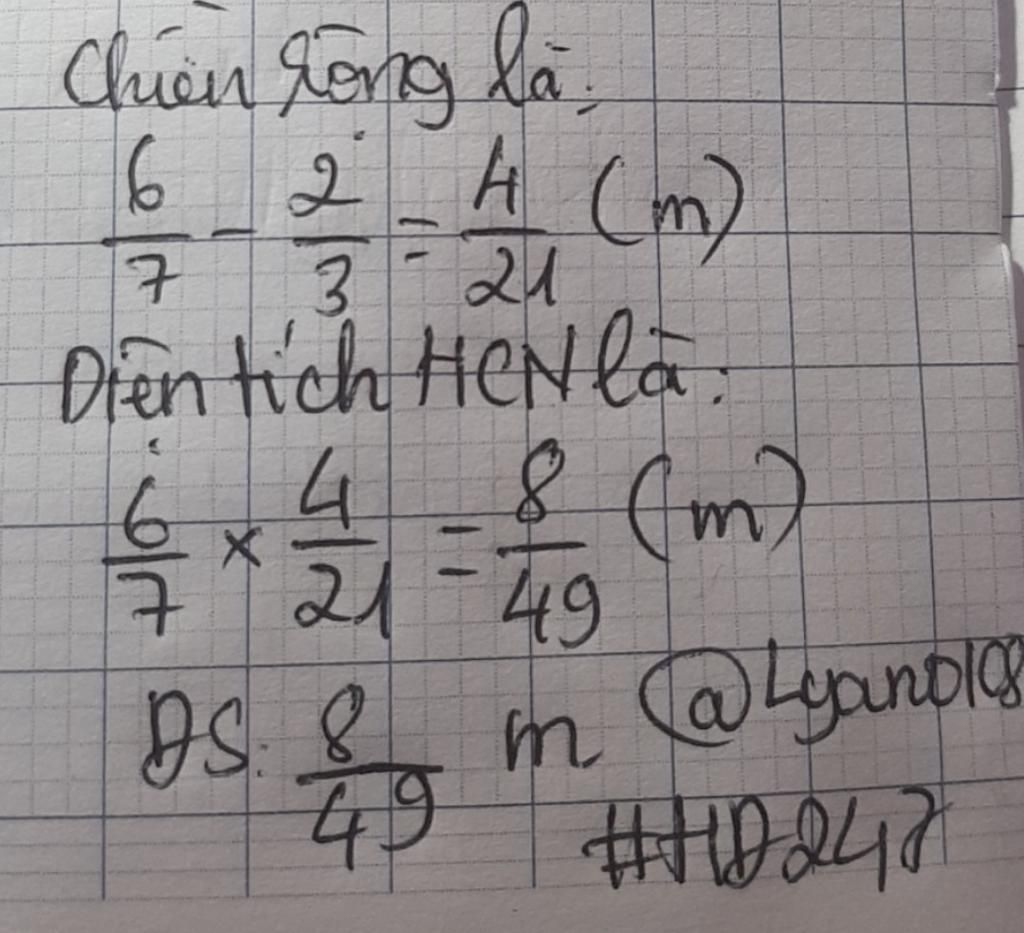 Chiều rộng là:
6/7 - 2/3 = 4/21 (m)
Diện tích HCN là:
6/7 × 4/21 = 8/49 (m)
ĐS: 8/49 m @Lyano108
#HD247